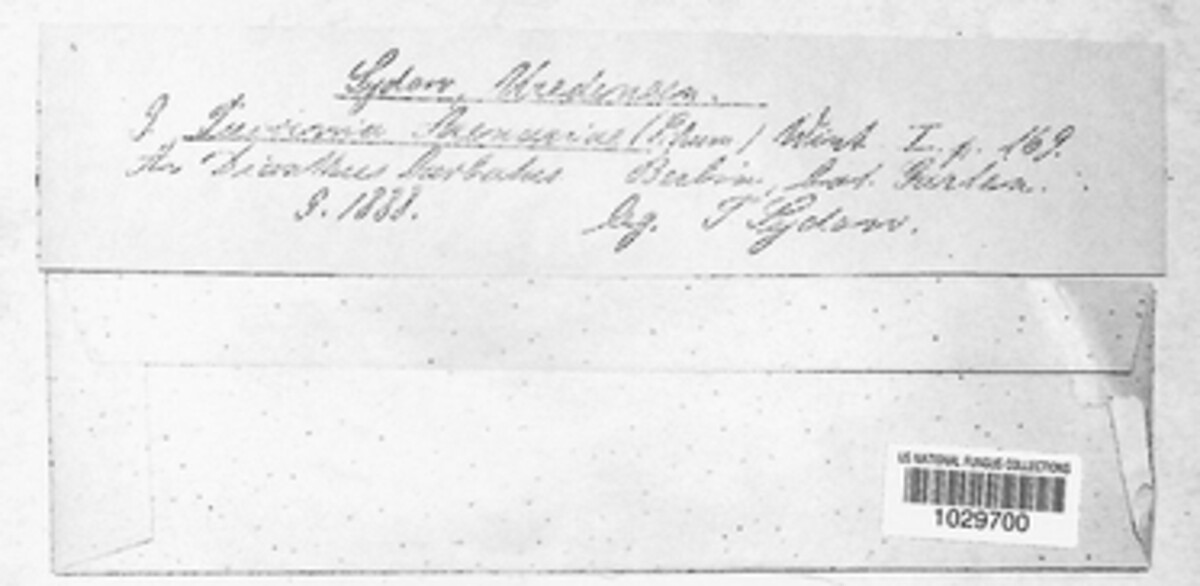 Sydow, Uredineen.
9. Puccinia Arenariae (Schum) Wint. I. p. 169.
An Dianthus barbatus Berlin, bot. Garten.
9. 1888. leg. P Sydow.
US NATIONAL FUNGUS COLLECTIONS
1029700